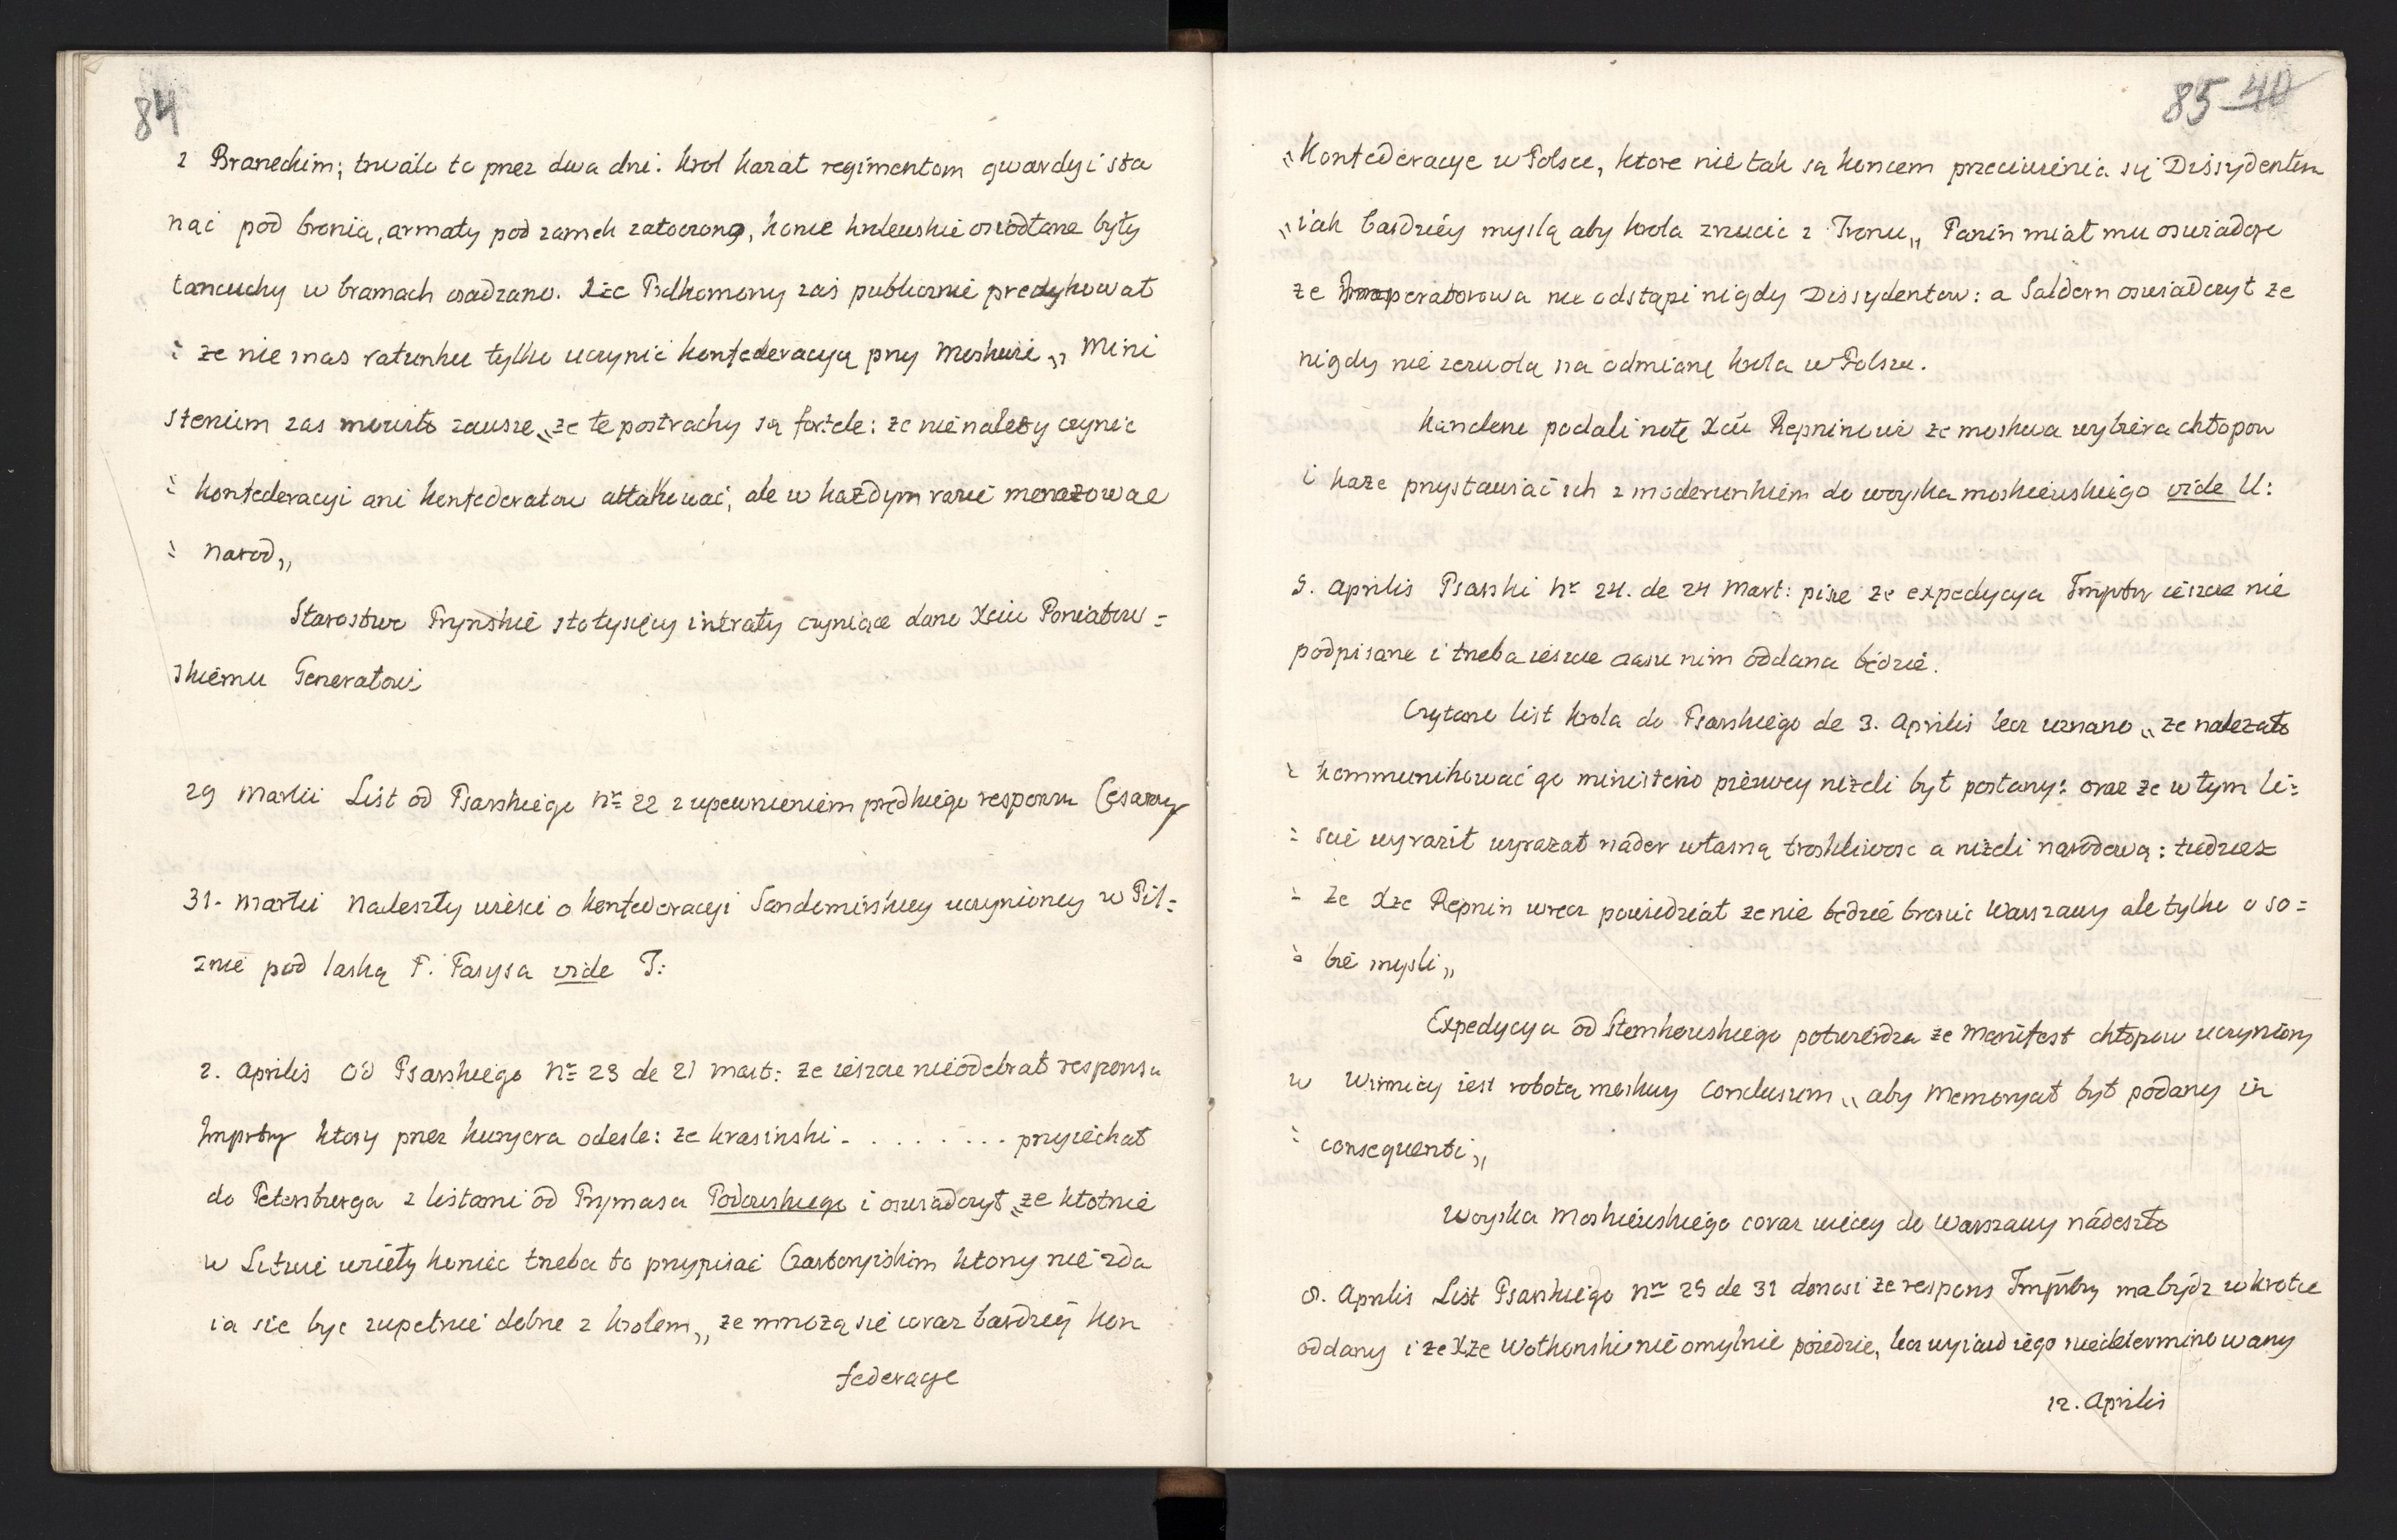 84
z Braneckim; trwało to przez dwa dni. Krol kazał regimentom gwardyi sta
nąć pod bronią, armaty pod zamek zatoczono, konie krolewskie osiodłane były
łancuchy w bramach osadzano. Xże Podkomorzy zaś publicznie predykował
: że niemasz ratunku tylko uczynić konfederacyą przy Moskwie „ Mini
sterium zas mowiło zawsze „że te postrachy są fortele: że nie należy czynić
: konfederacyi ani konfederatow attakować, ale w każdym razie menażować
: narod„
Starostwo Pryńskie sto tysięcy intraty czyniące dano Xciu Poniatow=
skiemu Generałowi
29 Martii List od Psarskiego Nro 22 z upewnieniem prędkiego responsu Cesarzy
31. Martii Nadeszły wieści o konfederacyi Sandomirskiey uczynioney w Pil=
znie pod laską P. Tarysa vide T:
2. Aprilis Od Psarskiego Nro 23 de 21 Mart: że ieszcze nieodebrał responsu
Imprtry ktory przez kuryera odesle: że Krasinski - . . . . . . . . przyiechał
do Petersburga z listami od Prymasa Podoskiego i oswiadczył „że kłotnie
w Litwie wzieły koniec trzeba to przypisać Czartoryiskim ktorzy nie zda
ia sie być zupełnie dobrze z krolem„ że mnożą się coraz bardziey kon
federacye
85 40
„Konfederacye w Polsce, ktore nie tak są koncem przeciwienia się Dissydentom
„iak bardziey myslą aby krola zrzucić z Tronu„ Panin miał mu oswiadczyc
że Imperatorowa nie odstąpi nigdy Dissydentow: a Saldern oswiadczył że
nigdy nie zezwolą na odmianę krola w Polszcze.
Kanclerze podali notę Xciu Repninowi że moskwa wybiera chłopow
i każe przystawiać ich z moderunkiem do woyska moskiewskiego vide U:
5. Aprilis Psarski Nr 24. de 24 Mart: pisze że expedycya Imprtry ieszcze nie
podpisana i trzeba ieszcze czasu nim oddana będzie.
Czytano list krola do Psarskiego de 3. Aprilis lecz uznano „że należało
: kommunikować go ministerio pierwey niżeli był posłany: oraz że w tym li=
: scie wyraził wyrazał nader własną troskliwosc a niżeli narodową: tudzież
: że Xże Repnin wrecz powiedział że nie będzie bronić Warszawy ale tylko o so=
: bie mysli„
Expedycya od Stemkowskiego potwierdza że Manifest chłopow uczyniony
w Winnicy iest robotą moskwy Conclusum „aby Memoryał był podany in
: consequenti„
Woyska Moskiewskiego coraz więcey do Warszawy nadeszło
8. Aprilis List Psarskiego Nro 25 de 31 donosi że respons Imprtry ma bydz wkrotce
oddany i że Xże Wołkonski nieomylnie poiedzie, lecz wyiazd iego niedeterminowany
12. Aprilis